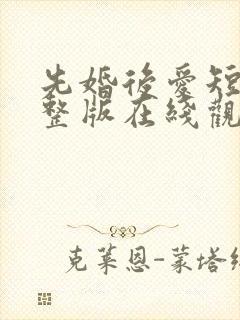 先婚後愛短
整版在綫觀
克萊恩-蒙塔